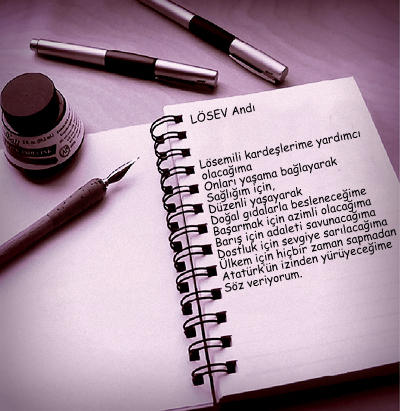 LÖSEV Andı
Lösemili kardeşlerime yardımcı
olacağıma
Onları yaşama bağlayarak
Sağlığım için,
Düzenli yaşayarak
Doğal gıdalarla besleneceğime
Başarmak için azimli olacağıma
Barış için adaleti savunacağıma
Dostluk için sevgiye sarılacağıma
Ülkem için hiçbir zaman sapmadan
Atatürk'ün izinden yürüyeceğime
Söz veriyorum.